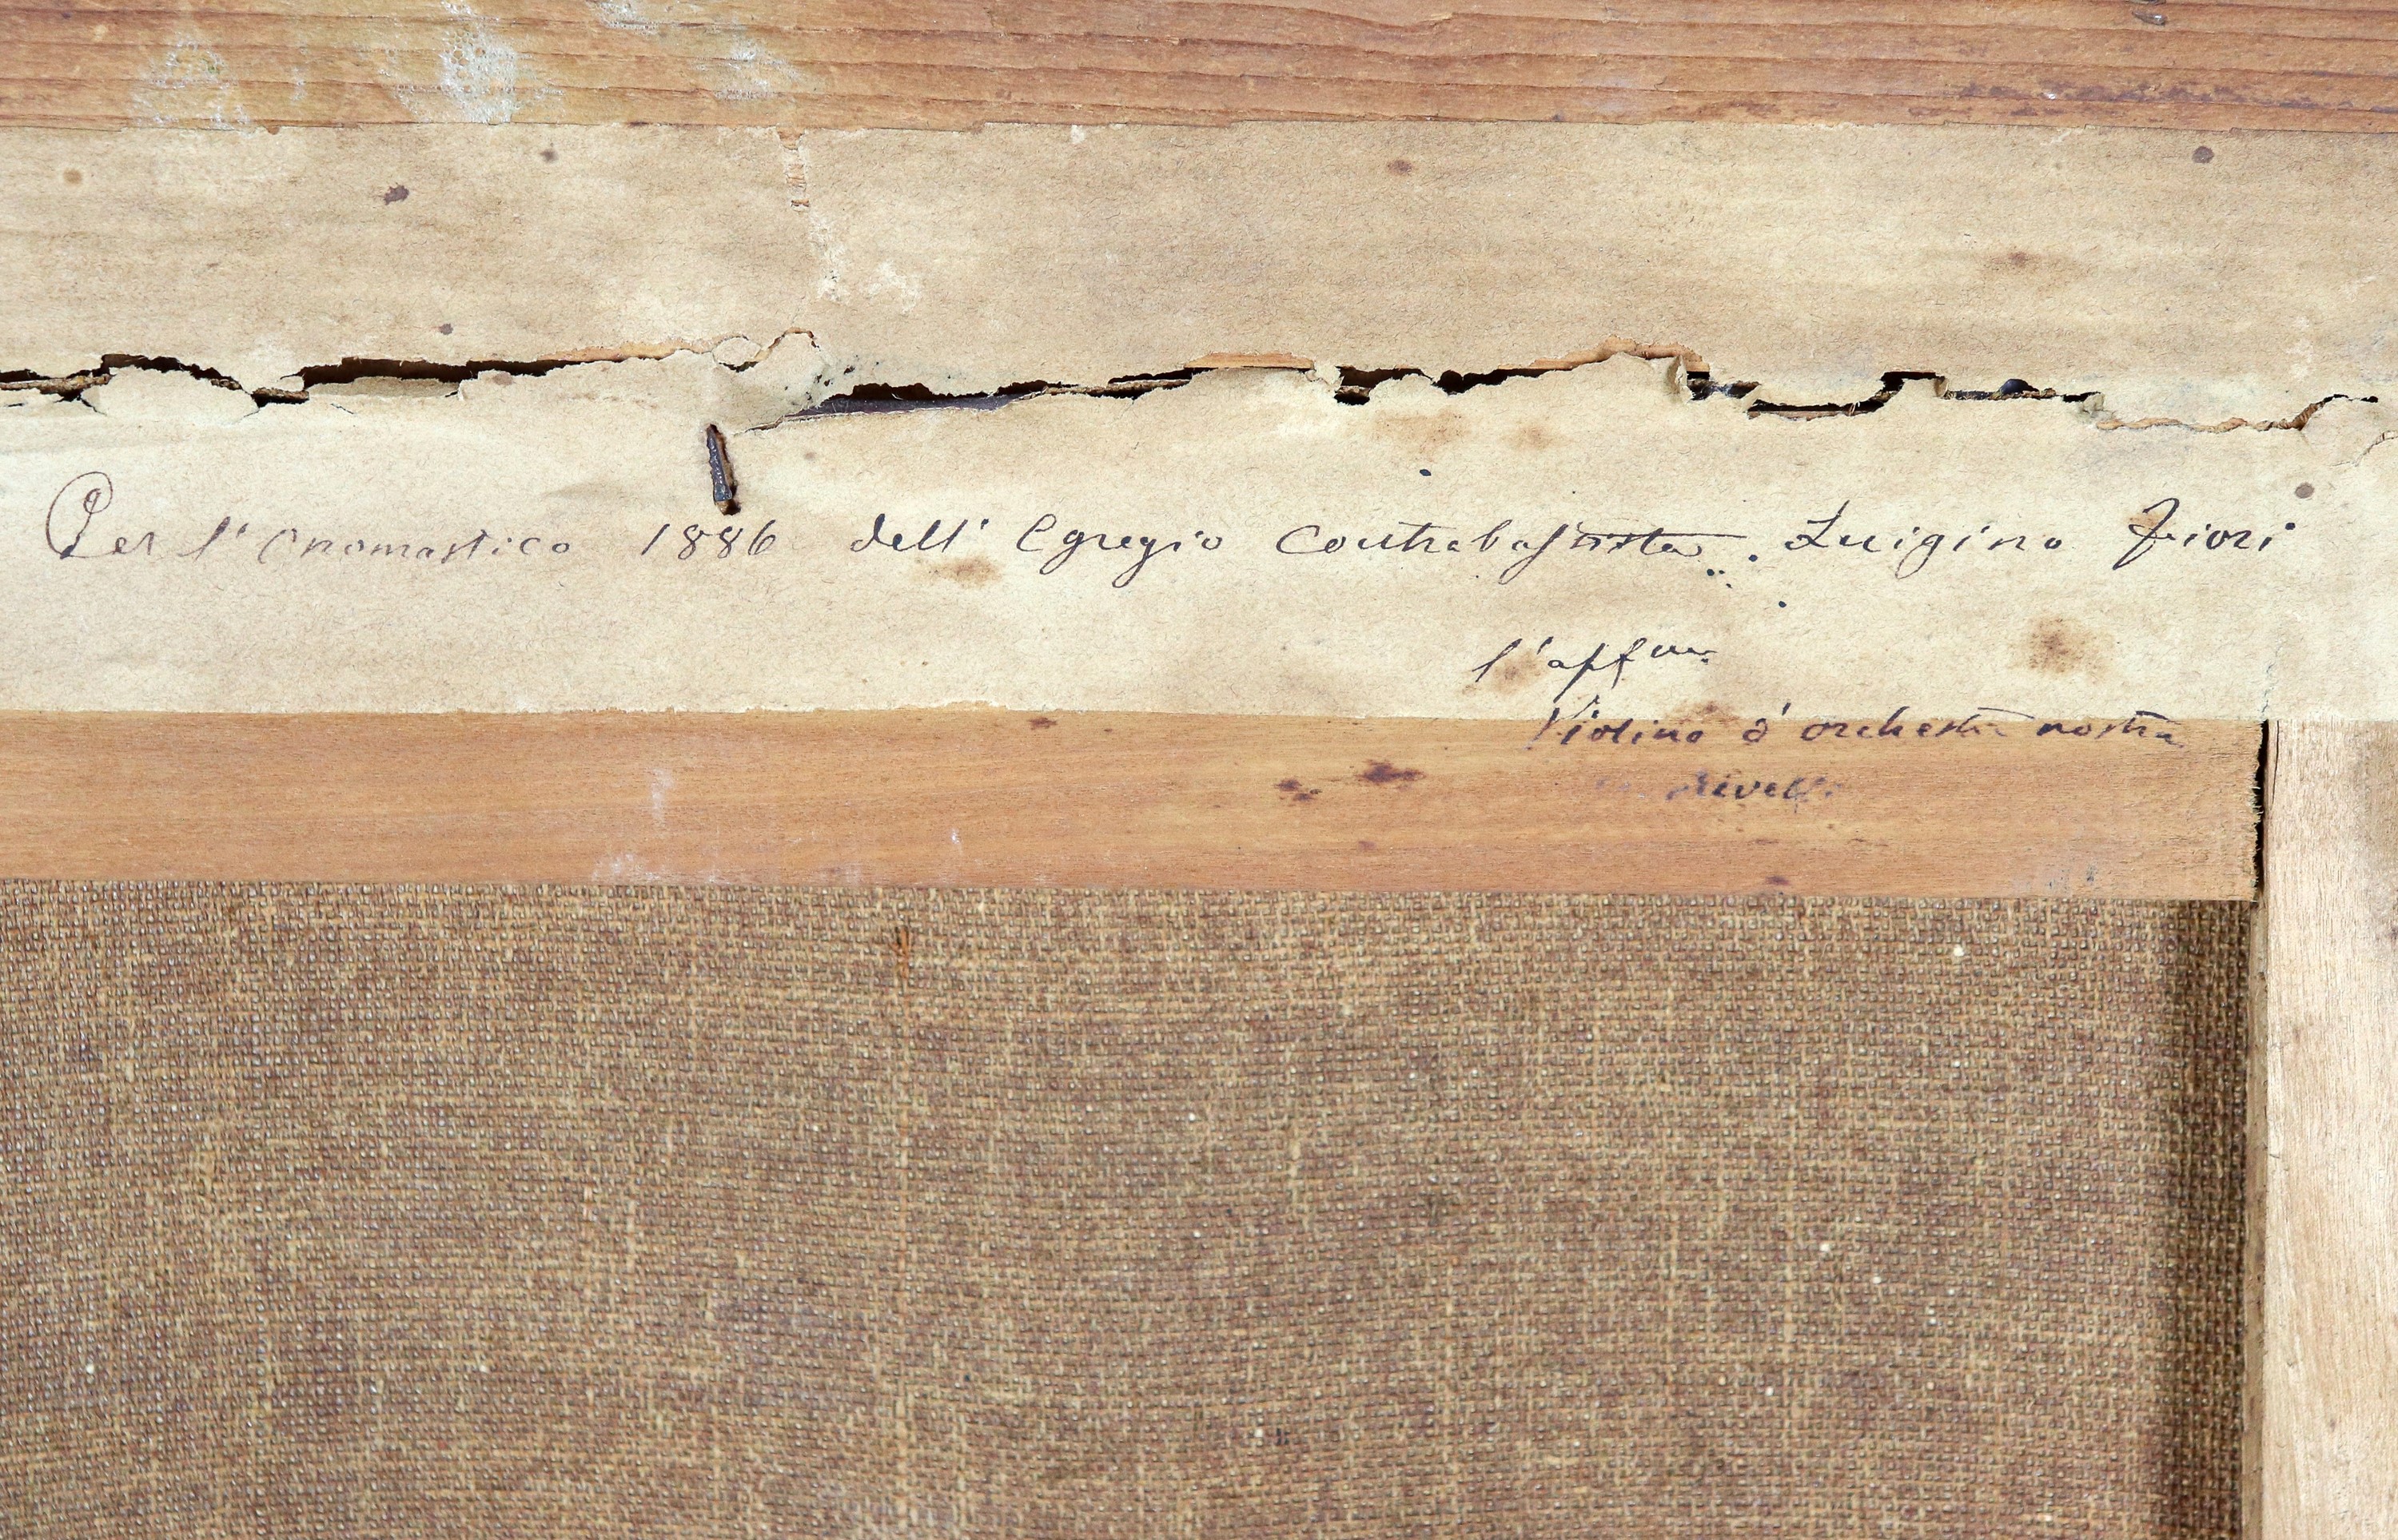 Per l'Onomastico 1886 dell'Egregio Contrabassista Luigino Fiori
l'aff.mo
Violino d'orchestra nostra